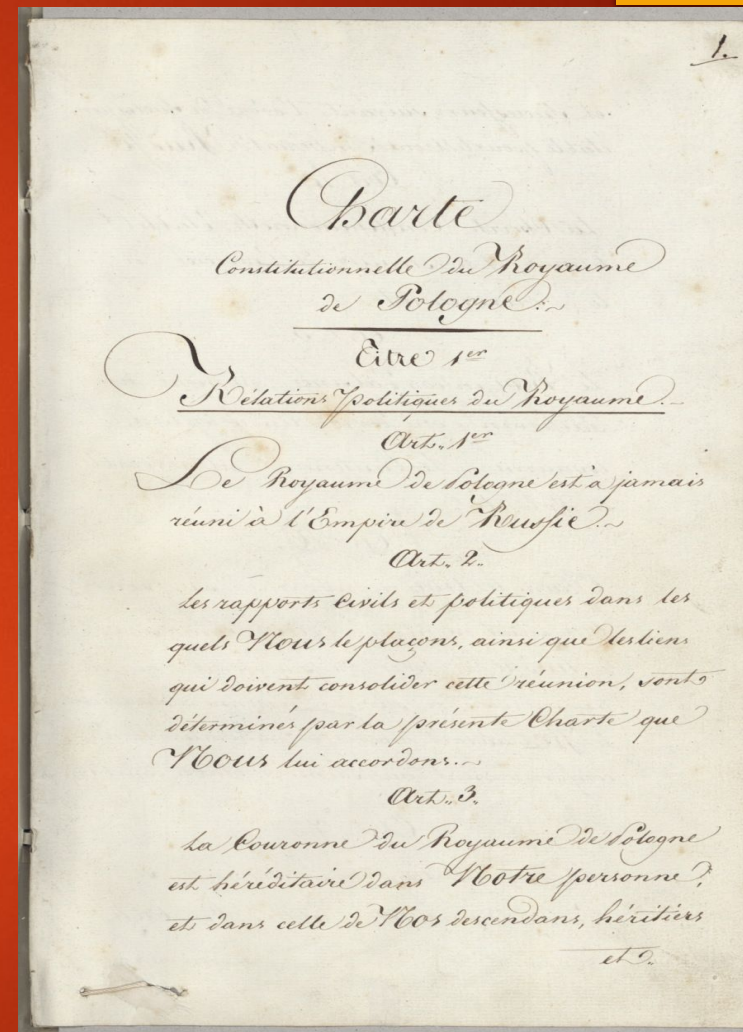 1.
Charte
Constitutionnelle du Royaume
de Pologne.
Titre 1er
Rélations politiques du Royaume.
Art. 1er
Le Royaume de Pologne est à jamais
réuni à l'Empire de Russie.
Art. 2.
Les rapports civils et politiques dans les
quels Nous le plaçons, ainsi que les liens
qui doivent consolider cette réunion, sont
déterminés par la présente Charte que
Nous lui accordons.
Art. 3.
La Couronne du Royaume de Pologne
est héréditaire dans Notre personne,
et dans celle de Nos descendans, héritiers
et